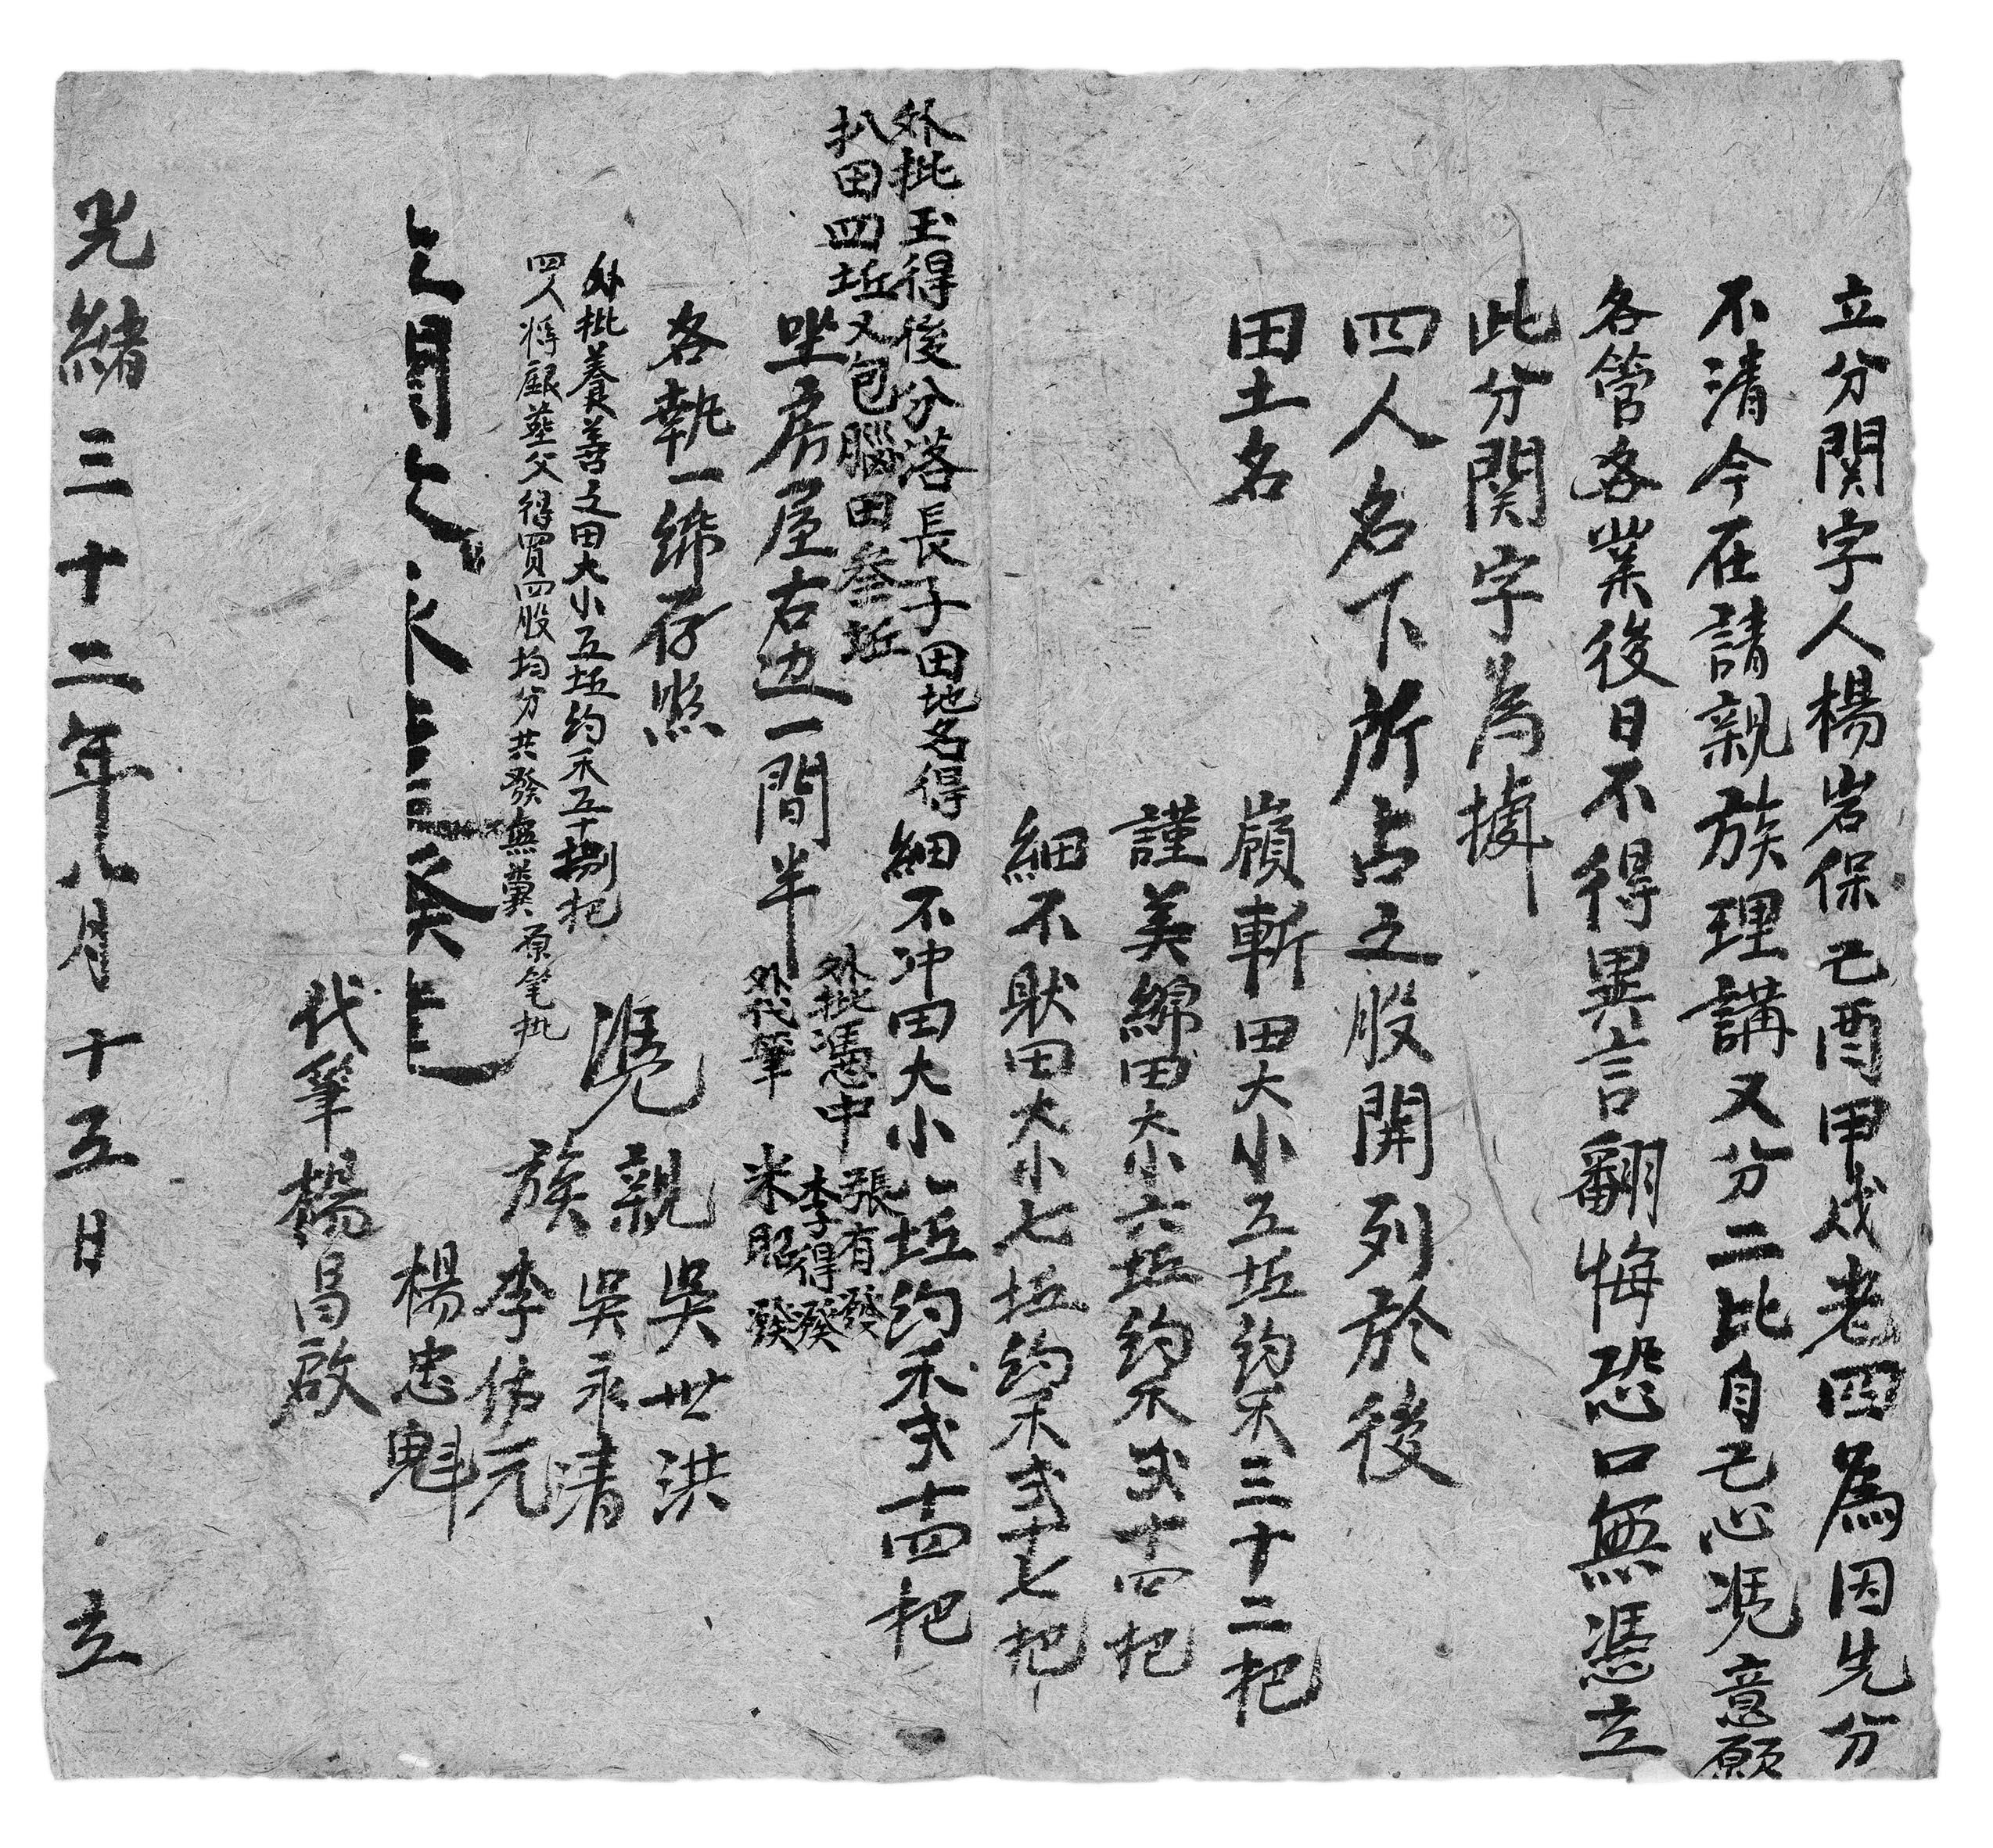 立分関字人楊岩保己酉甲戌老四為因先分
不清今在請親族理講又分二比自己心凴意愿
各管各業後日不得異言翻悔恐口無憑立
此分関字為據
四人名下所占之股開列於後
田土名
嶺斬田大小五坵約禾三十二把
謹美綿田大小六坵約禾弍十四把
細不狀田大小七坵約禾弍十七把
細不冲田大小八坵約禾弍十四把
外批玉得後分落長子田地名得
扒田四坵又包腦田叁坵
坐房屋右边一間半
外批憑中 張有發
李得發
外代筆 米昭發
各執一紙存照
外批養善之田大小五坵約禾五十捌把
四人将銀葬父得買四股均分共發無異 原笔批
凴 親 吳世洪
吳永清
族 李仿元
楊忠魁
代筆楊昌啟
光緒三十二年八月十五日 立